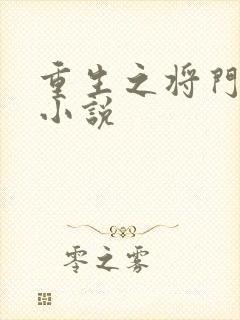 重生之将門
小説
零之雾